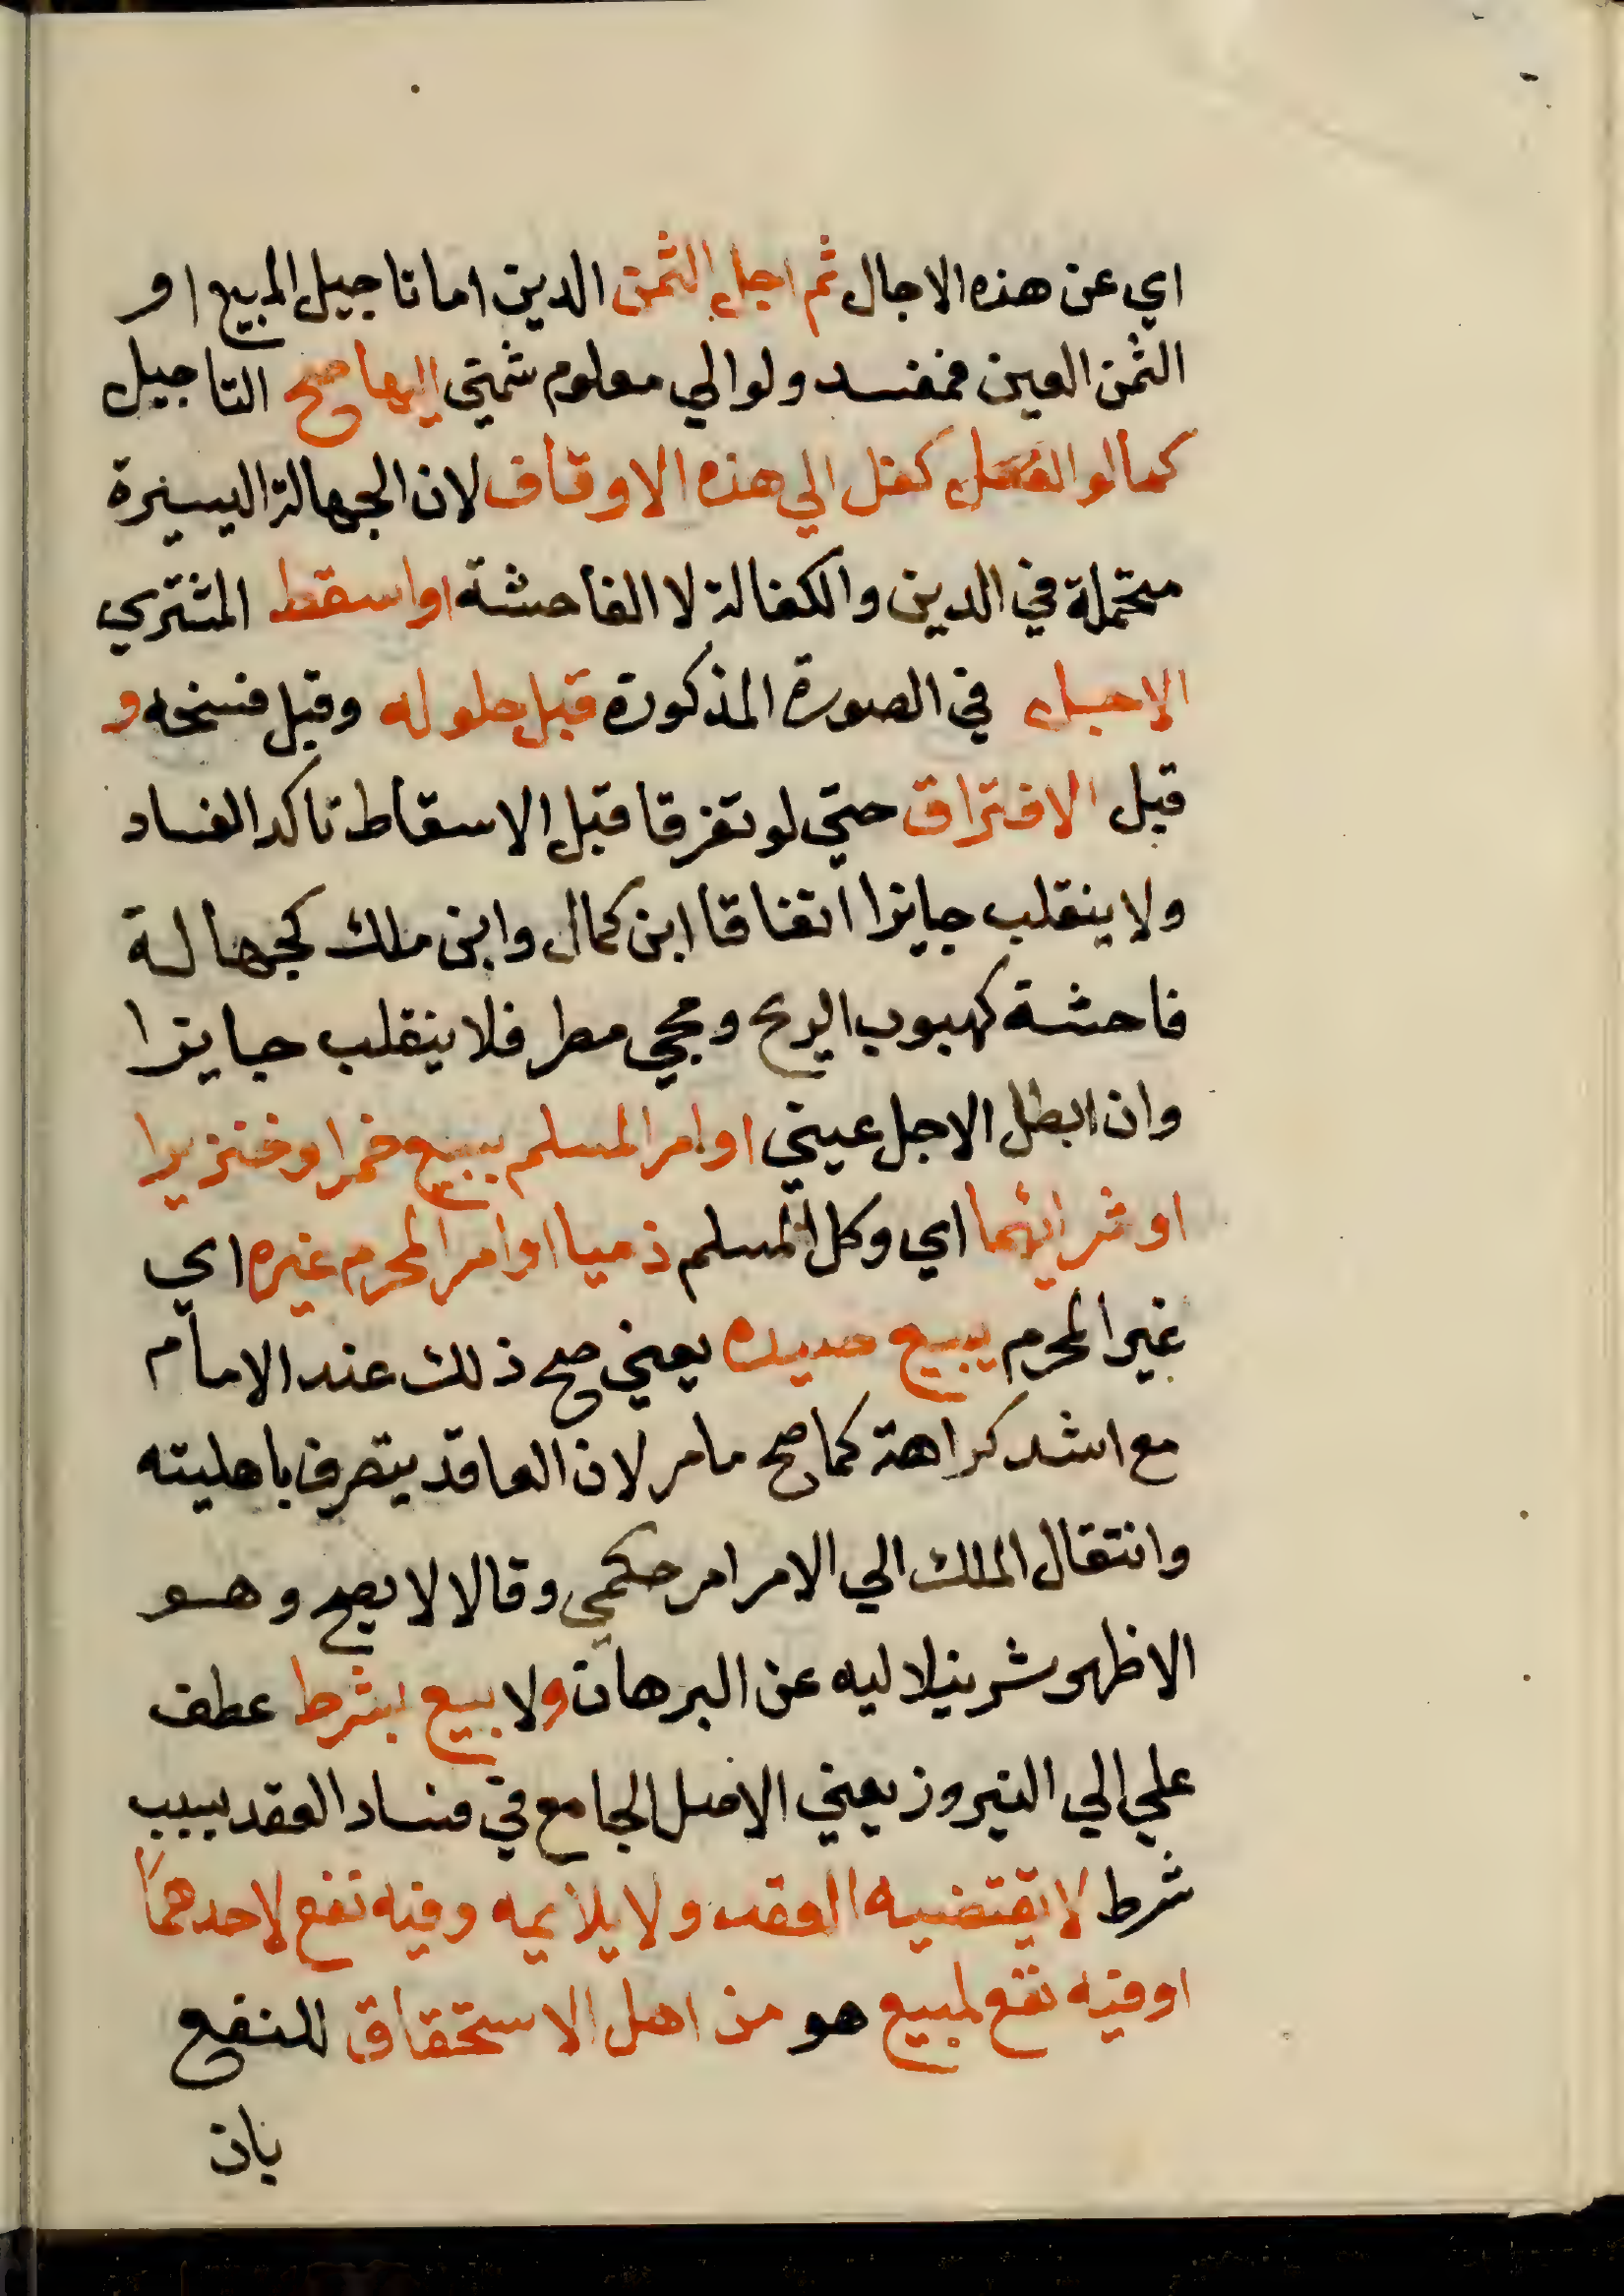 اي عن هذه الاجال ثم اجل الثمن الدين اما تاجيل المبيع او
الثمن العين فمفسد ولو الي معلوم شمني اليها صح التاجيل
كما لو كفل الي هذه الاوقات لان الجهالة اليسيرة
متحملة في الدين والكفالة لا الفاحشة او اسقط المشتري
الاجل في الصورة المذكورة قبل حلوله وقبل فسخه و
قبل الافتراق حتي لو تفرقا قبل الاسقاط تاكد الفساد
ولا ينقلب جايزا اتفاقا ابن كمال وابن ملك كجهالة
فاحشة كهبوب الريح ومجي مطر فلا ينقلب جايزا
وان ابطل الاجل عيني او امر المسلم ببيع خمر او خنزيرا
او شرائهما اي وكل المسلم ذميا او امر المحرم غيره اي
غير المحرم ببيع صيده يعني صح ذلك عند الامام
مع اشد كراهة كما صح مامر لان العاقد يتصرف باهليته
وانتقال الملك الي الامر امر حكمي وقالا لا يصح وهو
الاظهر شرنبلاليه عن البرهان ولا بيع بشرط عطف
علي الي النيروز يعني الاصل الجامع في فساد العقد بسبب
شرط لا يقتضيه العقد ولا يلايمه وفيه نفع لاحدهما
او فيه نفع لمبيع هو من اهل الاستحقاق للنفع
بان